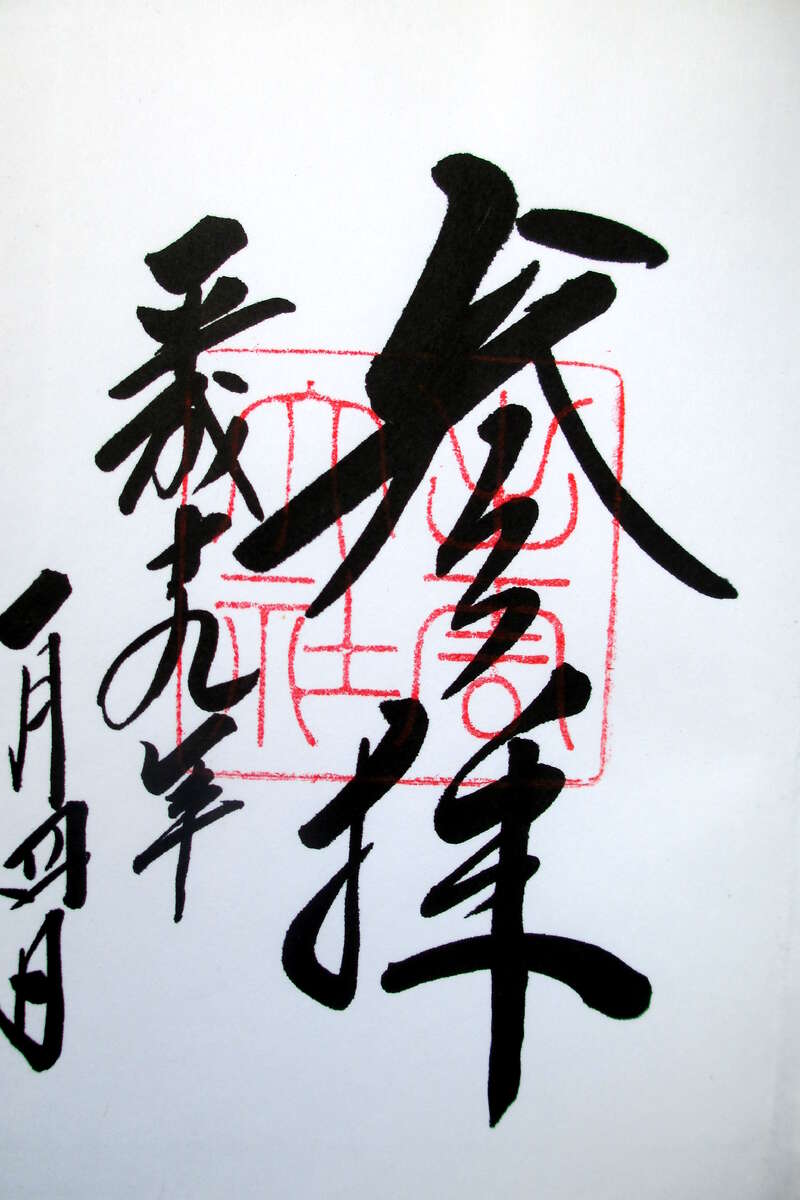 参拝
平成十九年
一月四日
出雲大社